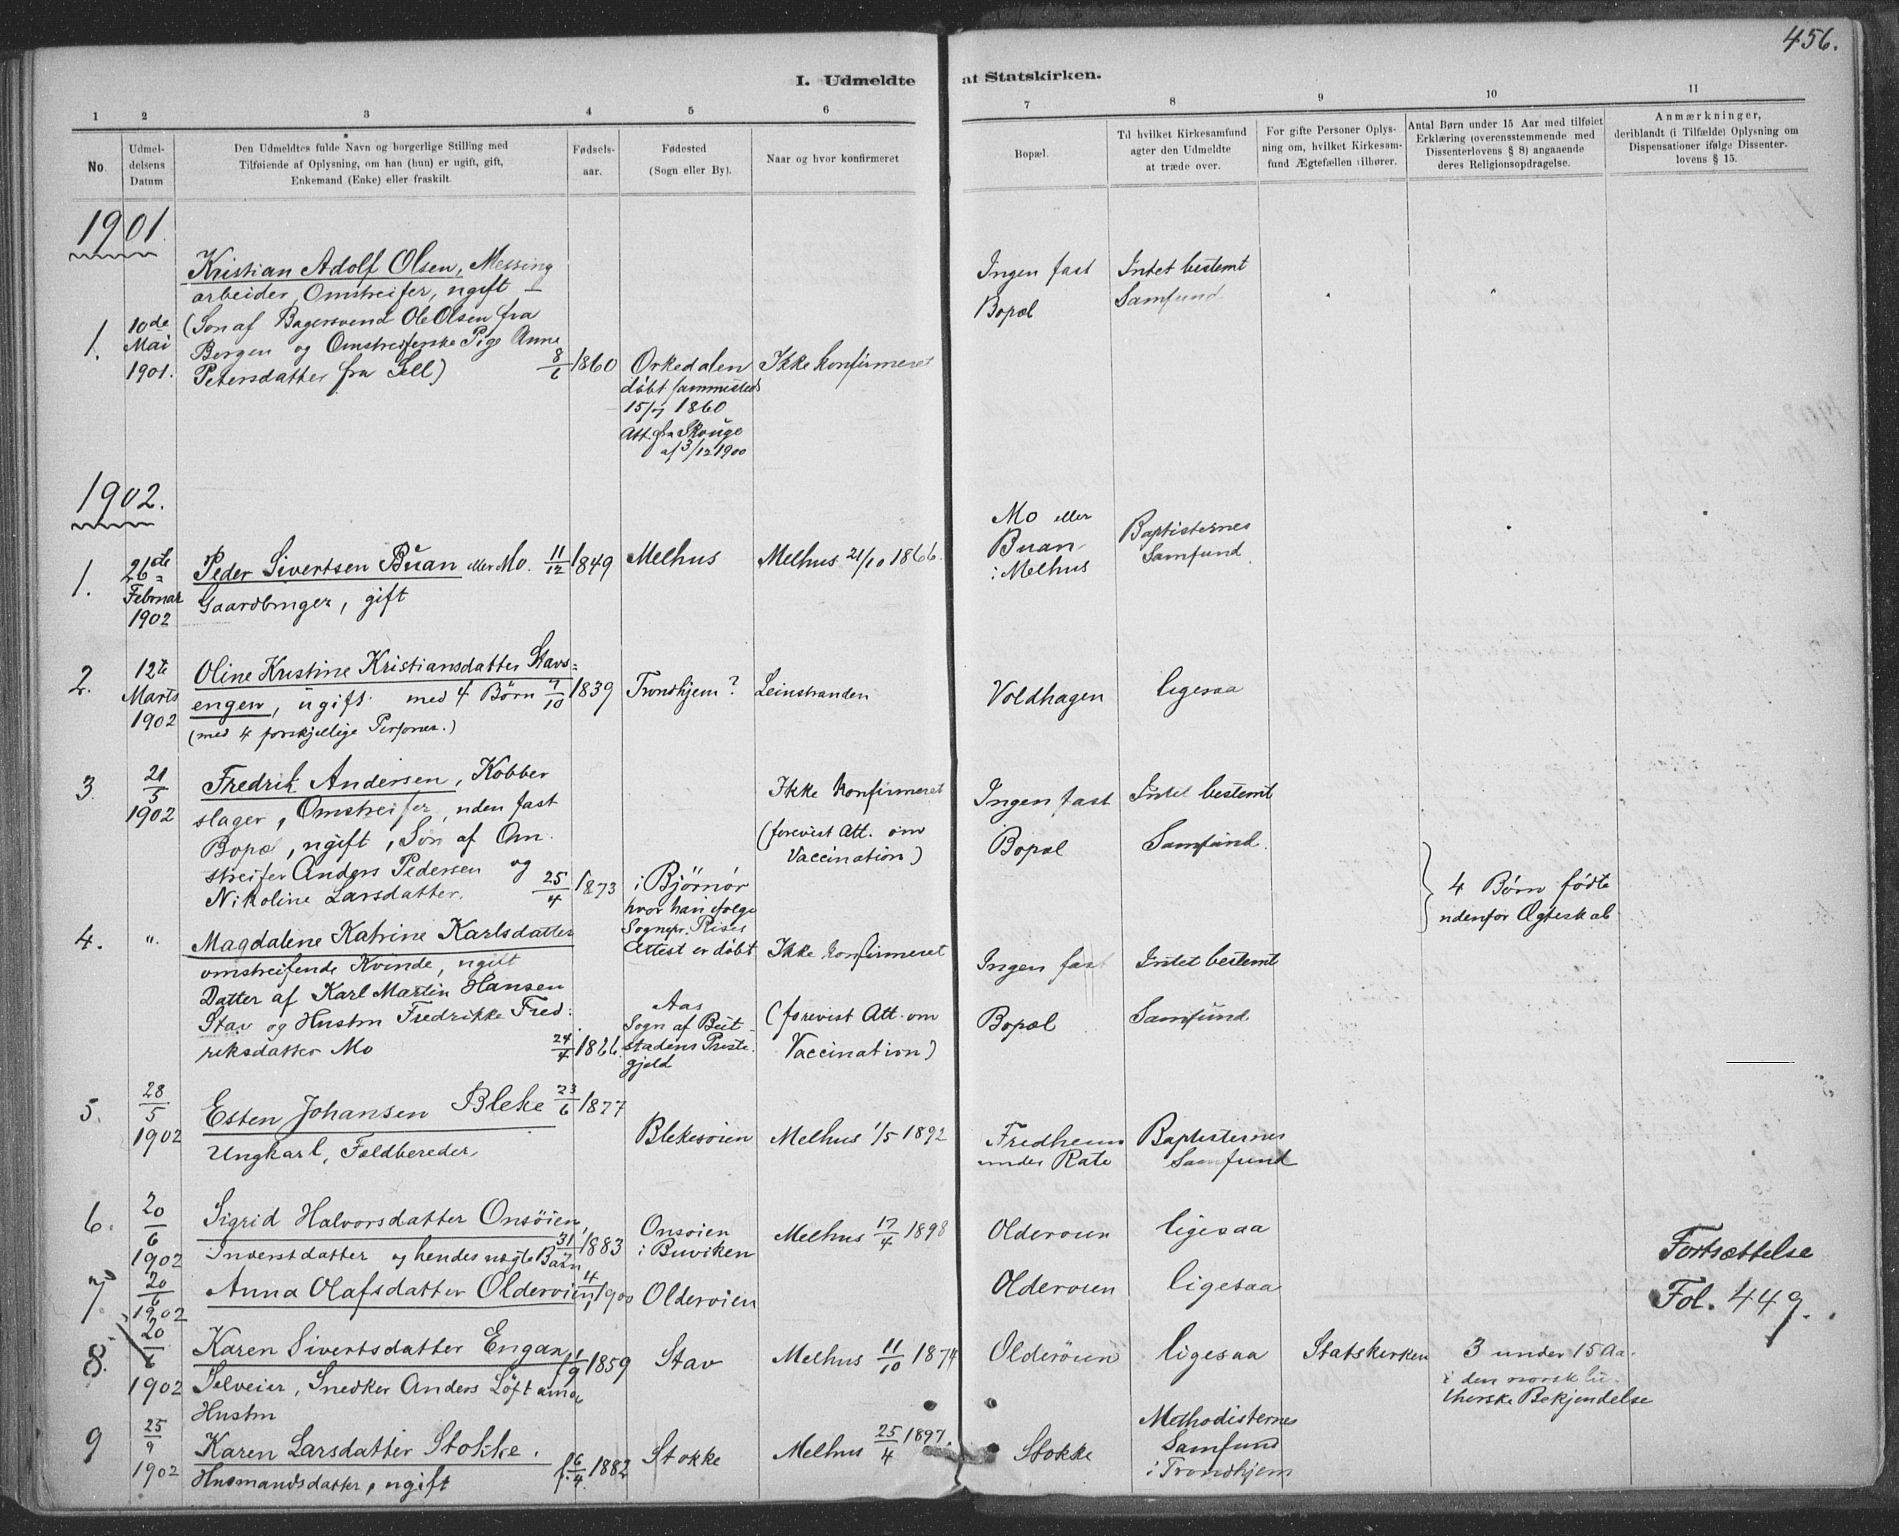 456.
I. Udmeldte af Statskirken.
1 2 3 4 5 6 7 8 9 10 11
No.
Udmel-
delsens
Datum
Den Udmeldtes fulde Navn og borgerlige Stilling med
Tilføiende af Oplysning, om han (hun) er ugift, gift,
Enkemand (Enke) eller fraskilt.
Fødsels-
aar.
Fødested
(Sogn eller By).
Naar og hvor konfirmeret
Bopæl.
Til hvilket Kirkesamfund
agter den Udmeldte
at træde over.
For gifte Personer Oplys-
ning om, hvilket Kirkesam-
fund Ægtefællen tilhører.
Antal Børn under 15 Aar med tilføiet
Erklæring (overensstemmende med
Dissenterlovens § 8) angaaende
deres Religionsopdragelse.
Anmærkninger,
deriblandt (i Tilfælde) Oplysning om
Dispensationer ifølge Dissenter-
lovens § 15.
1901
1.
10de
Mai
1901.
Kristian Adolf Olsen, Messing
arbeider, Omstreifer, ugift
(Søn af Bagersvend Ole Olsen fra
Bergen og Omstreiferske Pige Anne
Petersdatter fra Sell)
8/6 1860
Orkedalen
døbt sammesteds
15/7 1860
Att. fra Skauge
af 3/12 1900
Ikke konfirmeret
Ingen fast
Bopæl
Intet bestemt
Samfund
1902.
1.
26de
Februar
1902
Peder Sivertsen Buan eller Mo.
Gaardbruger, gift
11/12 1849
Melhus
Melhus 21/10 1866.
Mo eller
Buan
i Melhus
Baptisternes
Samfund
2.
12te
Marts
1902
Oline Kristine Kristiansdatter Stavs=
engen, ugift med 4 Børn
(med 4 forskjellige Personer.)
7/10 1839
Trondhjem?
Leinstranden
Voldhagen
ligesaa
3.
21/5
1902
Fredrik Andersen, Kobber
slager, Omstreifer, uden fast
Bopæl, ugift, Søn af Om
streifer Anders Pedersen og
Nikoline Larsdatter.
25/4 1873
i Bjørnør
hvor han ifølge
Sognepr. Rises
Attest er døbt
Ikke konfirmeret
(forevist Att. om
Vaccination)
Ingen fast
Bopæl
Intet bestemt
Samfund.
4 Børn fødte
udenfor Ægteskab
4.
"
Magdalene Katrine Karlsdatter
omstreifende Kvinde, ugift
Datter af Karl Martin Hansen
Stav og Hustru Fredrikke Fred=
riksdatter Mo
24/4 1866.
Aas
Sogn af Beit-
stadens Præste-
gjeld
Ikke konfirmeret
(forevist Att. om
Vaccination)
Ingen fast
Bopæl
Intet bestemt
Samfund
5.
28/5
1902
Esten Johansen Bleke
Ungkarl, Feldbereder.
23/6 1877
Blekesøien
Melhus 1/5 1892
Fredheim
under Rate
Baptisternes
Samfund
6.
20/6
1902
Sigrid Halvorsdatter Onsøien,
Inderstdatter og hendes uægte Barn
31/7 1883
Onsøien
i Buviken
Melhus 17/4 1898
Olderøien
ligesaa
7.
20/6
1902
Anna Olafsdatter Olderøien
4/1 1900
Olderøien
Olderøien
ligesaa
Fortsættelse
Fol. 449.
8.
20/6
1902
Karen Sivertsdatter Engan,
Selveier, Snedker Anders Løftamo
Hustru
f. 1/9 1859
Stav
Melhus 11/10 1874
Olderøien
ligesaa
Statskirken
3 under 15 Aa.
i den norsk lu-
therske Bekjendelse
9
25/9
1902
Karen Larsdatter Stokke.
Husmandsdatter, ugift
f. 6/4 1882
Stokke
Melhus 25/4 1897.
Stokke
Methodisternes
Samfund
i Trondhjem